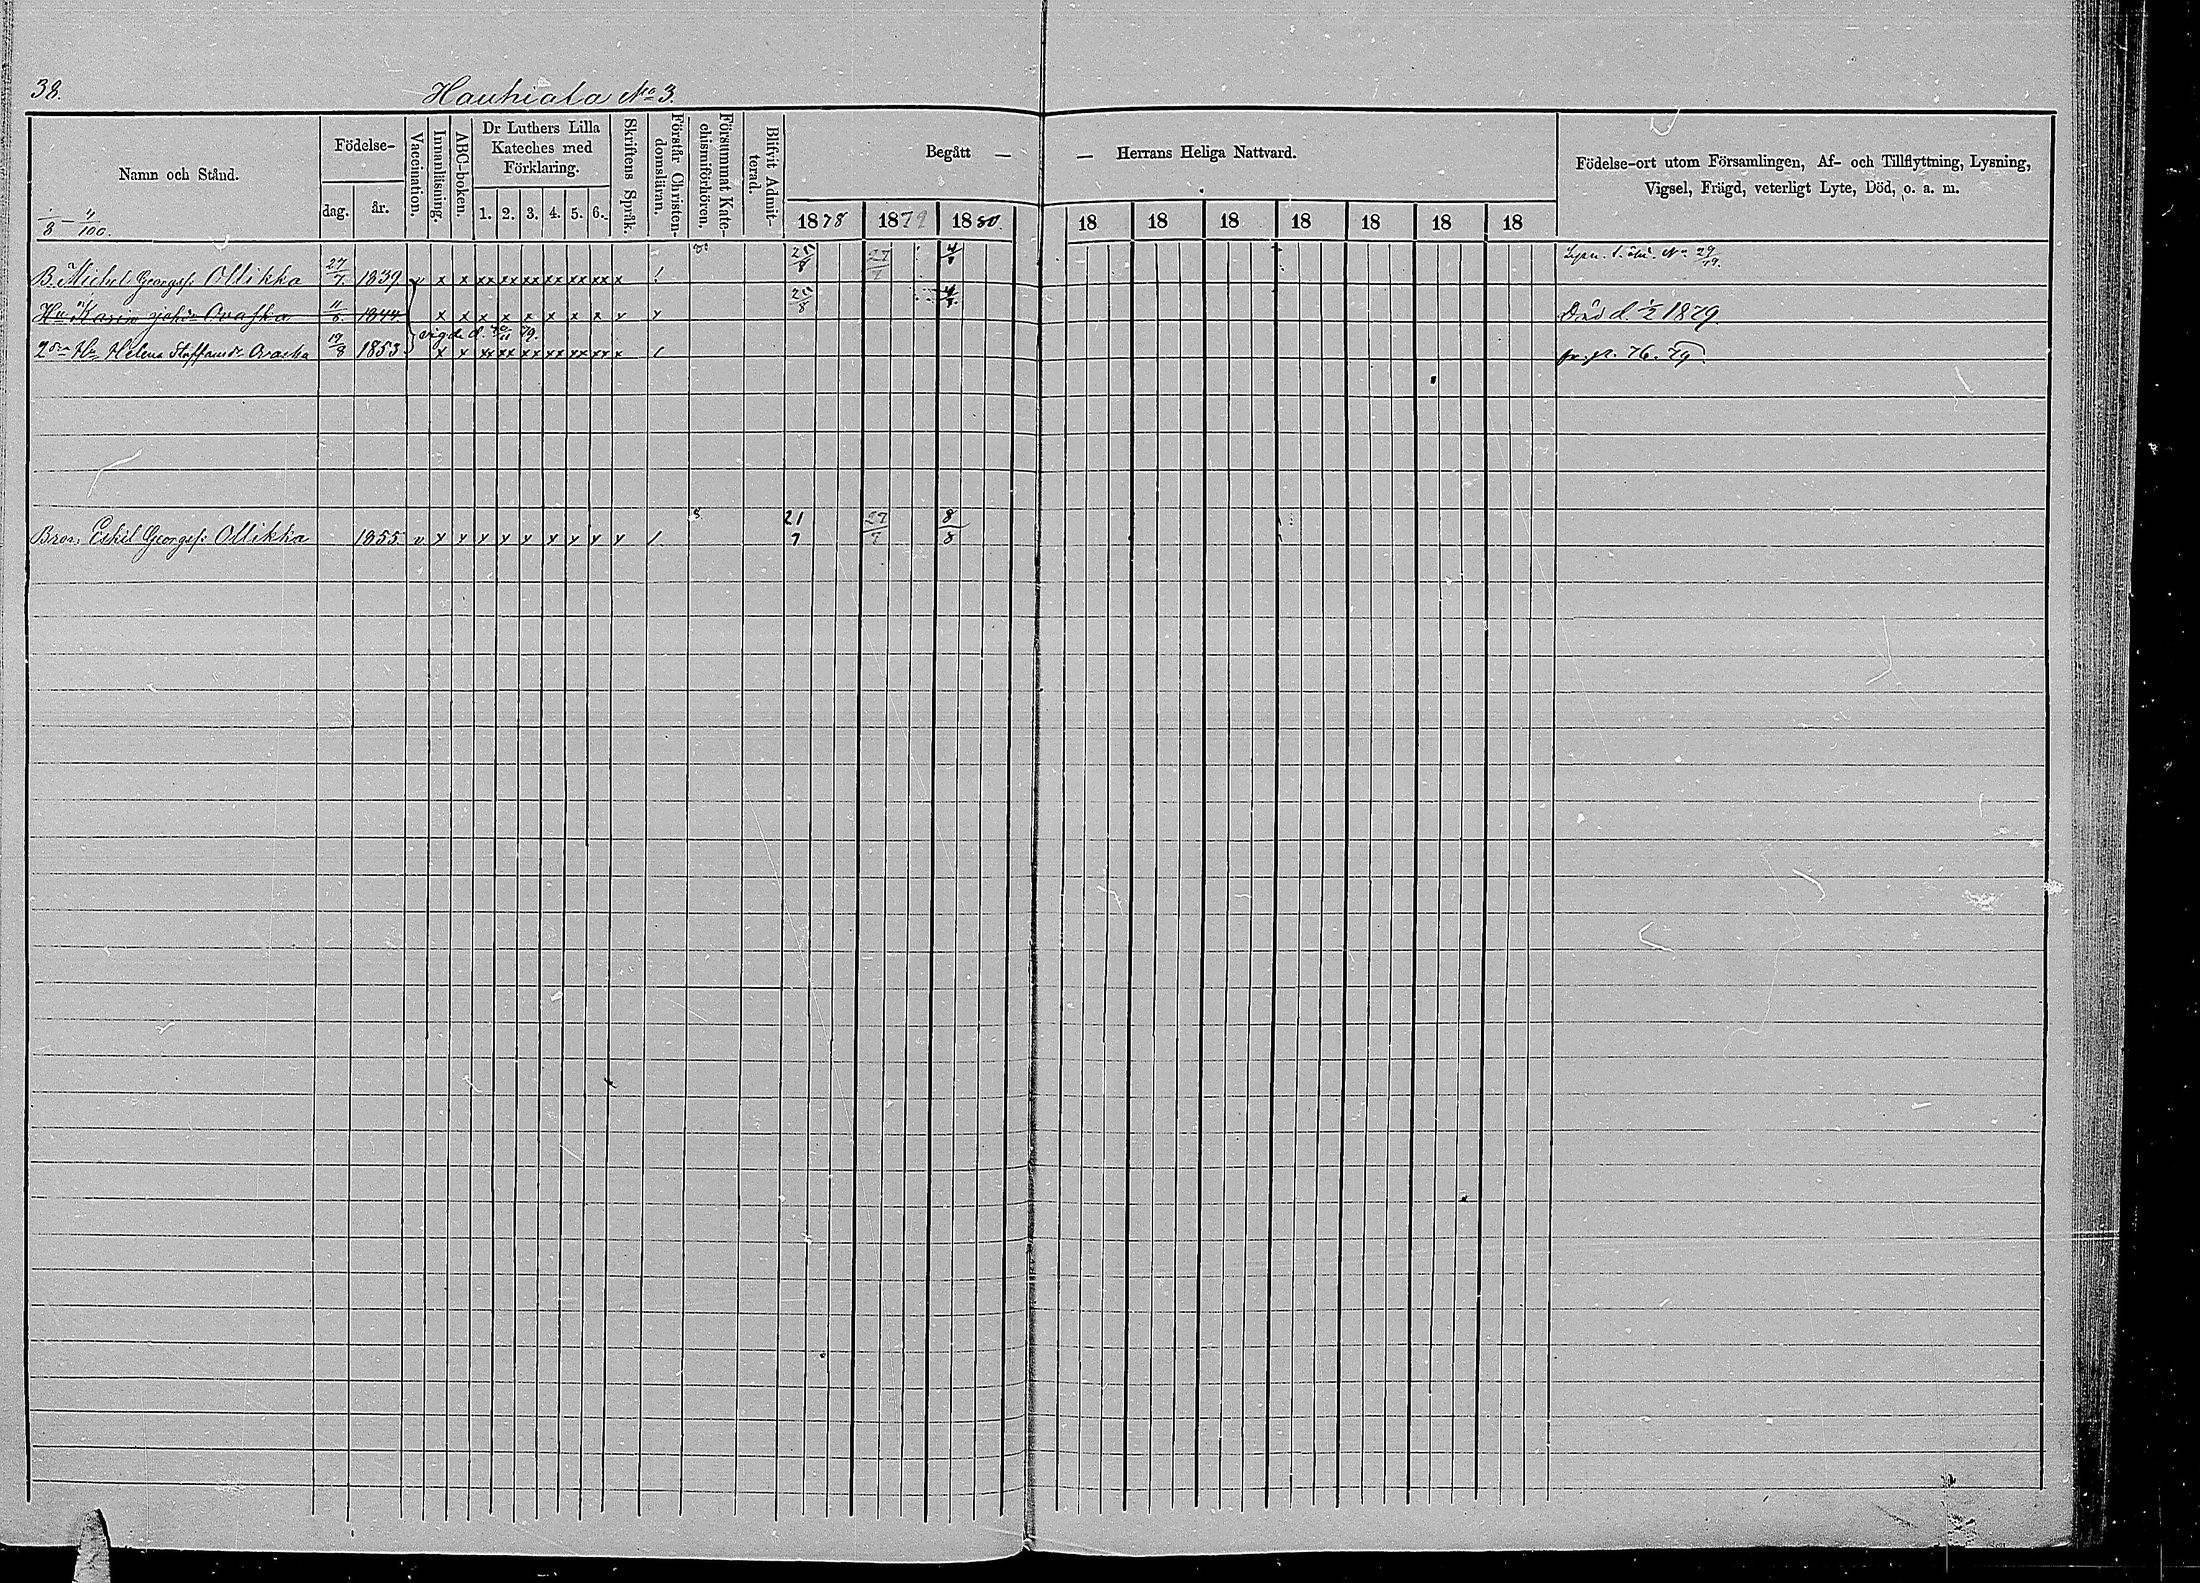 38.
Hauhiala No 3.
Namn och Stånd.
Födelse-
dag.
år.
Vaccination.
Innanläsning.
ABC-boken.
Dr Luthers Lilla
Kateches med
Förklaring.
1. 2. 3. 4. 5. 6.
Skriftens Språk.
Förstår Christen-
domsläran.
Försummat Kate-
chismiförhören.
Blifvit Admit-
terad.
Begått — — Herrans Heliga Nattvard.
1878 1879 1880. 18 18 18 18 18 18 18
Födelse-ort utom Församlingen, Af- och Tillflyttning, Lysning,
Vigsel, Frägd, veterligt Lyte, Död, o. a. m.
B. Michel Georgsf: Ollikka 27/7 1839 v x x xx xx xx xx xx xx x / 25/8 27/7 4/8
Hu Karin Johsdr Ovaska 1844 x x x x x x x x y y 25/8 4/8 Död d. 1/2 1879.
vigde d. 79.
2dra Hu Helena Staffansdr Ovaska 19/8 1853 x x xx xx xx xx xx xx x / fr. p. 76. 79.
Bror: Eskil Georgsf: Ollikka 1855 v y y y y y y y y y / 21/7 27/7 8/8